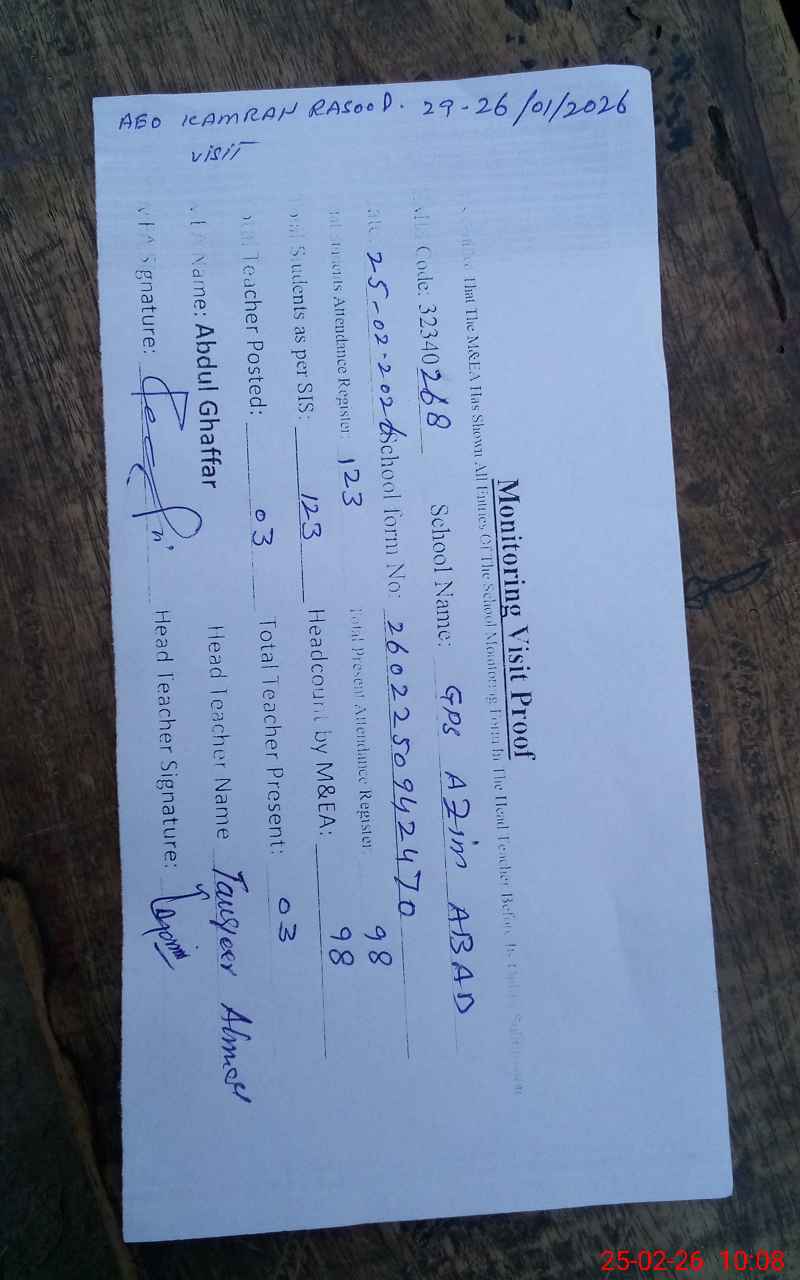 AEO KAMRAN RASOOD. 29-26/01/2026
visit
Monitoring Visit Proof
That The M&EA Has Shown All Entries Of The School Monitoring Form To The Head Teacher Before
Code: 32340268 School Name: GPS AZim ABAD
25-02-2026 School form No: 2602250942470
Attendance Register: 123 Total Present Attendance Register: 98
Students as per SIS: 123 Headcount by M&EA: 98
Teacher Posted: 03 Total Teacher Present: 03
Name: Abdul Ghaffar Head Teacher Name Tauqeer Ahmad
Signature: Head Teacher Signature:
25-02-26 10:08